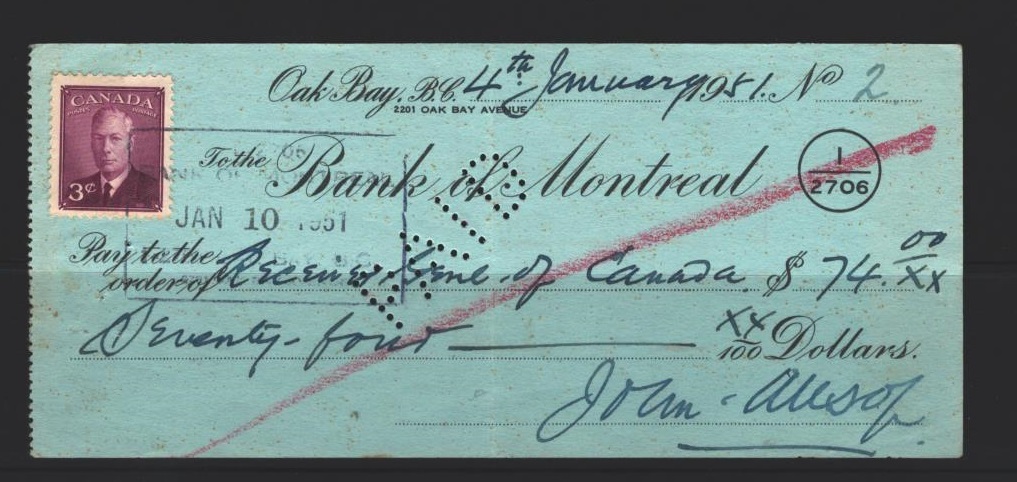 Oak Bay, B.C. 4th January 1951. No 2
2201 OAK BAY AVENUE
CANADA
POSTES POSTAGE
3¢
To the Bank of Montreal
1
2706
BANK OF MONTREAL
JAN 10 1951
PAID
Pay to the
order of Receiver Genl. of Canada $ 74.00/XX
Seventy-four XX/100 Dollars.
John Allsop